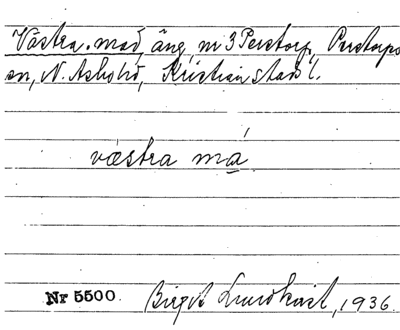 Västra mad, äng, nr 3 Perstorp, Perstorps
sn, N. Åsbohd, Kristianstads l.
västra má
Nr 5500. Birgit Lundkvist, 1936.